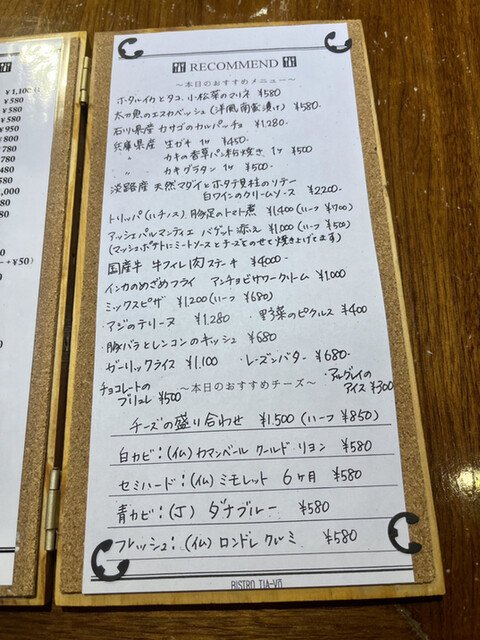 ¥1,100
¥580
¥580
¥580
¥950
¥800
¥780
¥480
¥780
+¥50)
RECOMMEND
～本日のおすすめメニュー～
ホタルイカとタコ、小松菜のマリネ ¥580
太刀魚のエスカベッシュ(洋風南蛮漬け) ¥580.
石川県産 カサゴのカルパッチョ ¥1,280.
兵庫県産 生ガキ 1ヶ ¥450.
〃 カキの香草パン粉焼き 1ヶ ¥500
〃 カキグラタン 1ヶ ¥500.
淡路産 天然マダイとホタテ貝柱のソテー
白ワインのクリームソース ¥2200.
トリッパ(ハチノス)、豚足のトマト煮 ¥1,400(ハーフ ¥700)
アッシェパルマンティエ バゲット添え ¥1,000(ハーフ ¥500)
(マッシュポテトにミートソースとチーズをのせて焼き上げてます)
国産牛 牛フィレ肉ステーキ ¥4000.
インカのめざめフライ アンチョビサワークリーム ¥1,000
ミックスピザ ¥1,200(ハーフ ¥680)
・アジのテリーヌ ¥1,280 ・野菜のピクルス ¥400
・豚バラとレンコンのキッシュ ¥680
ガーリックライス ¥1,100 ・レーズンバター ¥680.
チョコレートの
ブリュレ ¥500
・アールグレイの
アイス ¥300
～本日のおすすめチーズ～
チーズの盛り合わせ ¥1,500(ハーフ ¥850)
白カビ：(仏) カマンベール クールド リヨン ¥580
セミハード：(仏) ミモレット 6ヶ月 ¥580
青カビ：(デ) ダナブルー ¥580
フレッシュ：(仏) ロンドレ クルミ ¥580
BISTRO TIA-VÖ